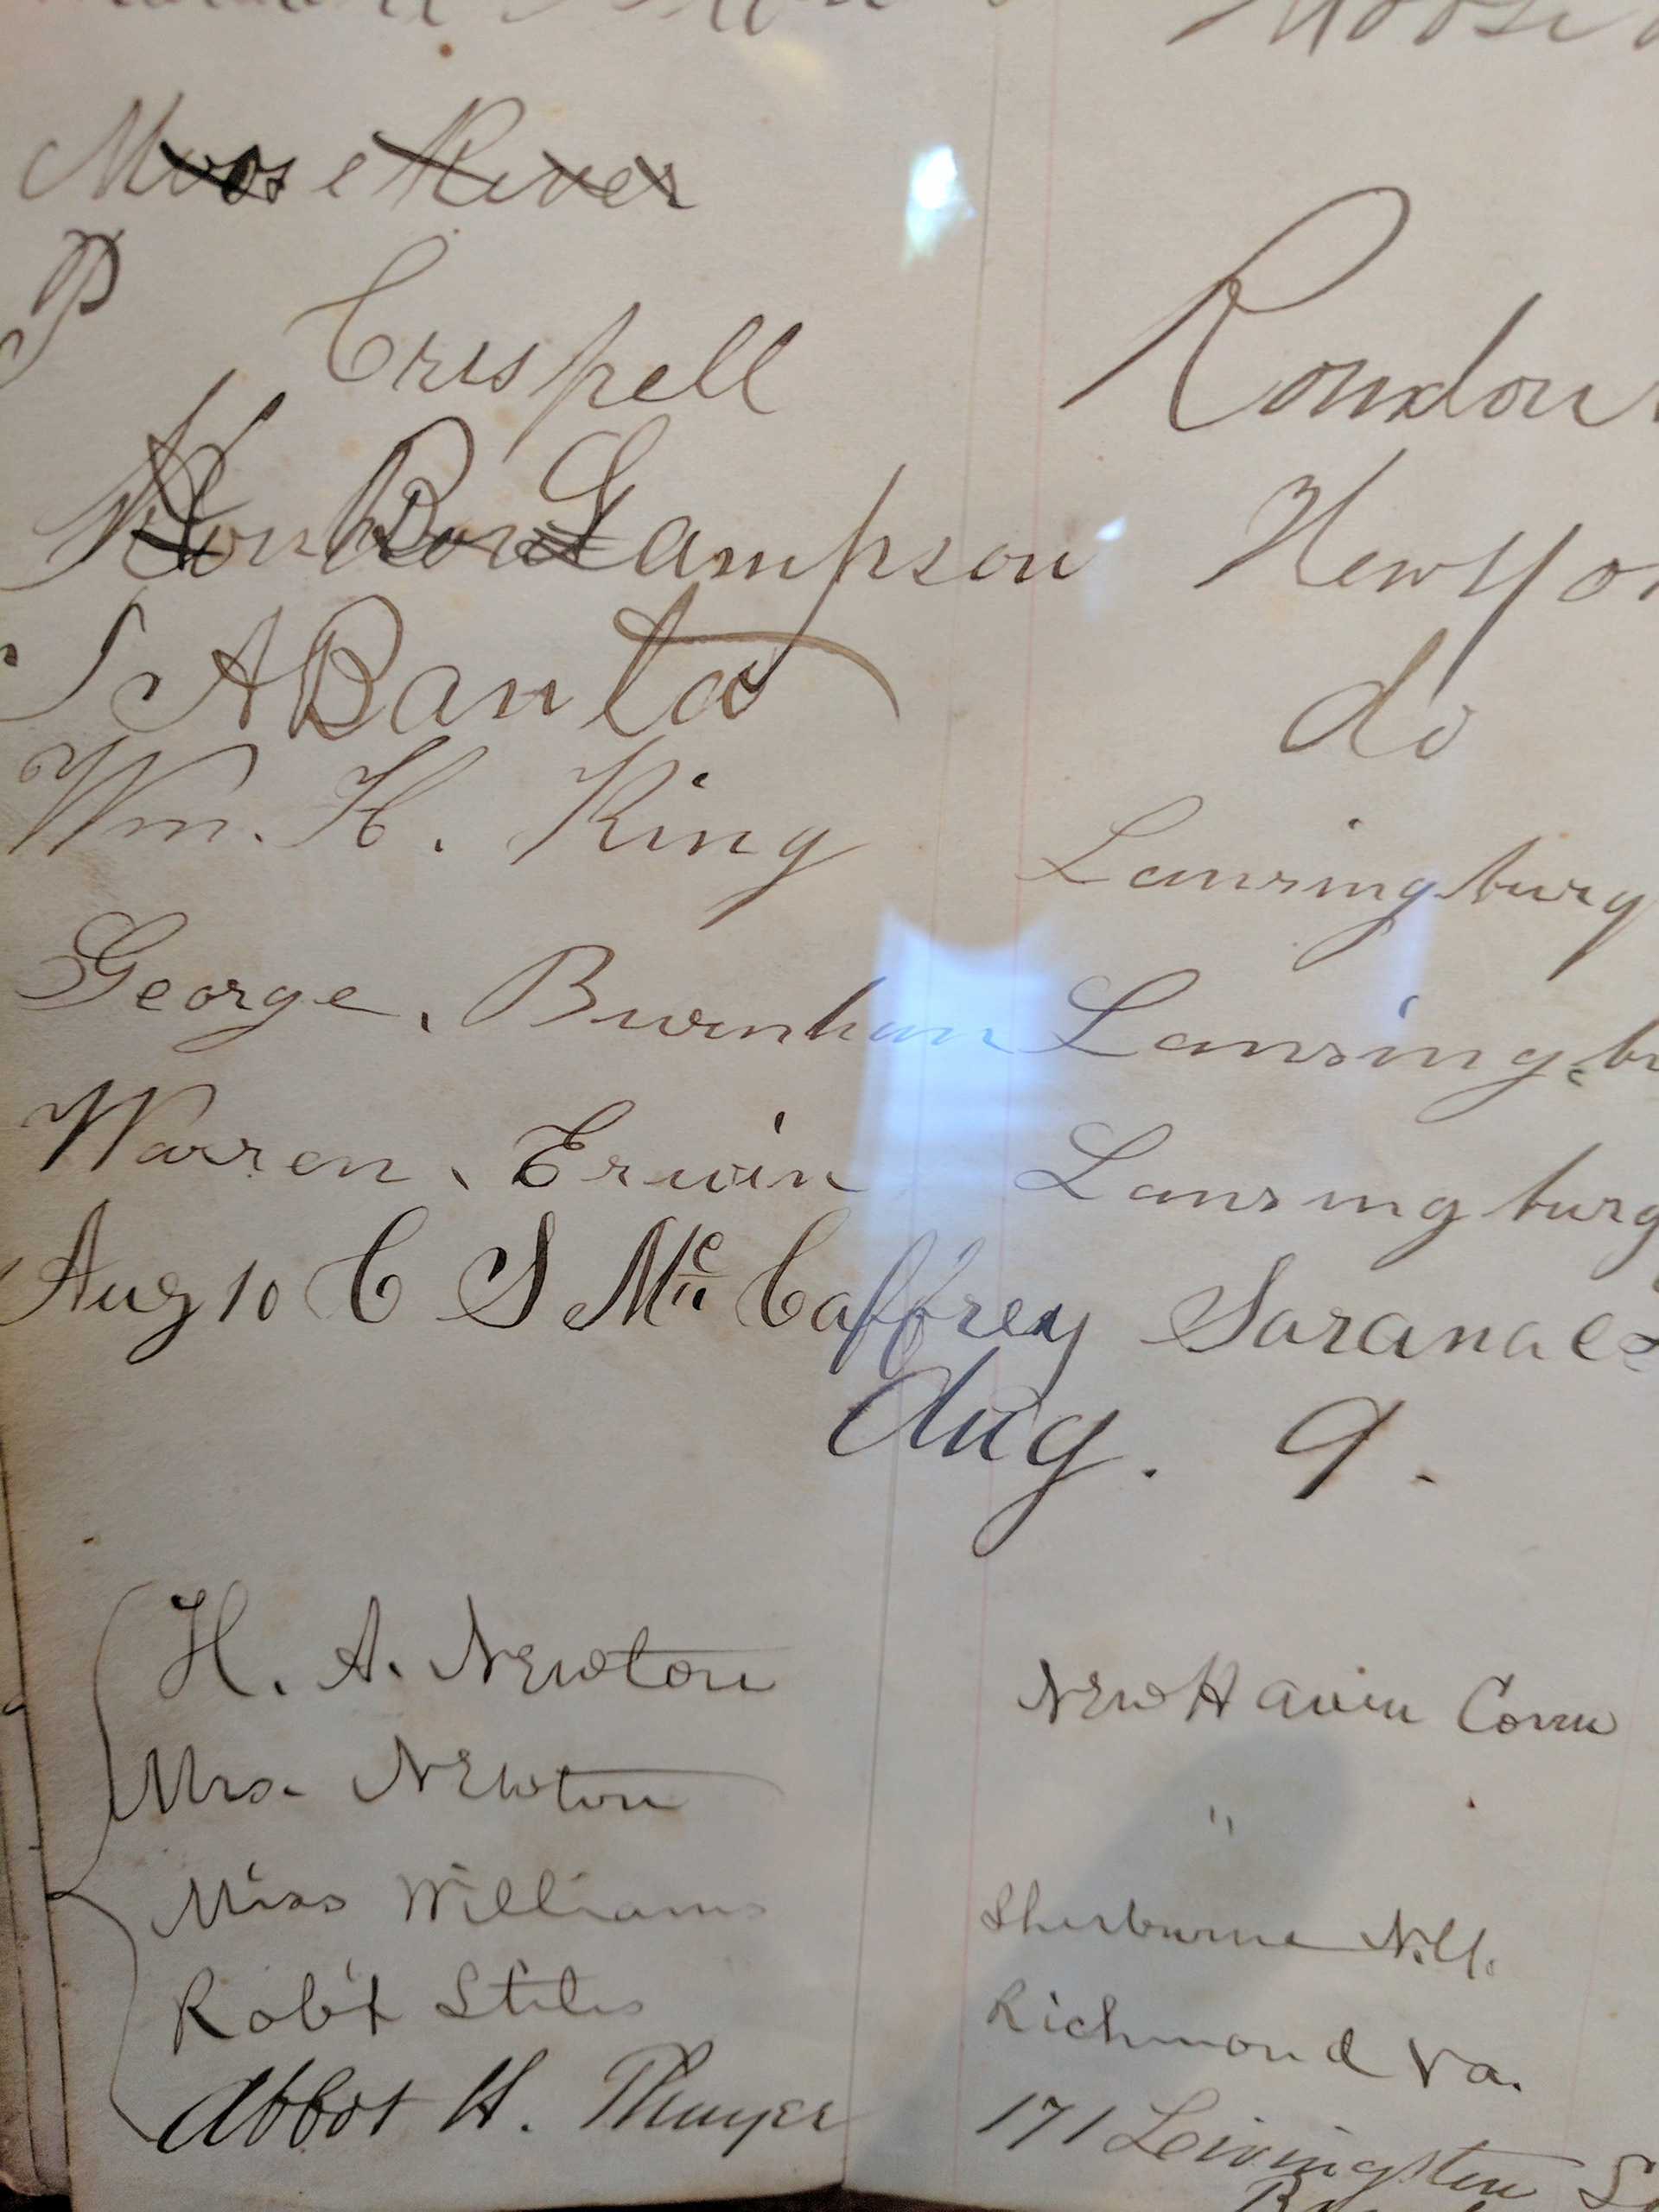 Moose River
P Crispell Rondou
Lampson New Yor
A Banta do
Wm. H. King Lansingburg
George, Burnham Lansingbu
Warren, Erwin Lansingburg
Aug 10 C S Mc Caffrey Saranac
Aug. 9.
H. A. Newton New Haven Conn
Mrs. Newton "
Miss Williams Sherburne N.Y.
Rob't Stiles Richmond Va.
Abbot H. Thayer 171 Livingston S